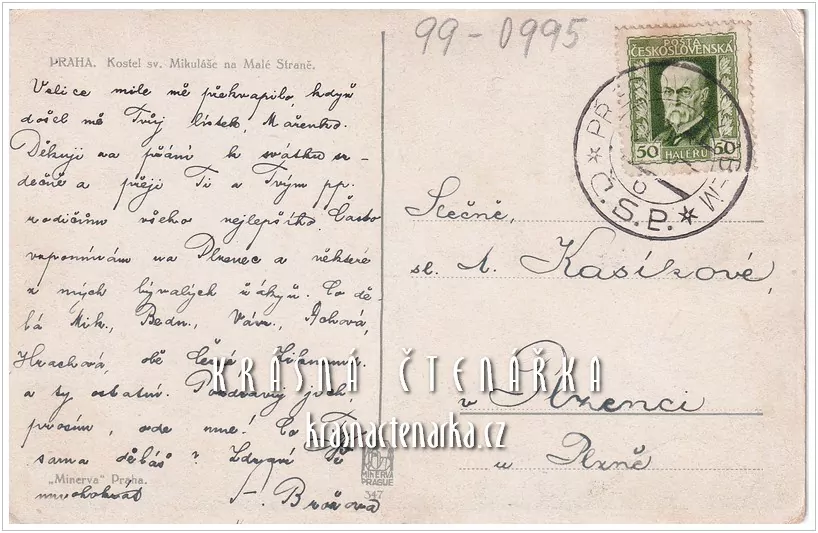 99-0995
PRAHA. Kostel sv. Mikuláše na Malé Straně.
Velice mile mě překvapilo, když
došel mě Tvůj lístek, Mařenko.
Děkuji za přání k svátku sr-
dečně a přeji Ti a Tvým pp.
rodičům všeho nejlepšího. Často
vzpomínám na Plzenec a některé
z mých bývalých žákyň. Co dě-
lá Mik., Bedn., Vávr., Áchová,
Hrachová, obě
a ty ostatní. Pozdravuj jich,
prosím, ode mne! Co Ty
sama děláš? Zdraví Tě
mnohokrát
A. Brožová
„Minerva" Praha.
MINERVA
PRAGUE
347
POŠTA
ČESKOSLOVENSKÁ
50 HALÉŘŮ 50
Slečně,
sl. A. Kasíkové,
v Plzenci
u Plzně
KRÁSNÁ ČTENÁŘKA
krasnactenarka.cz